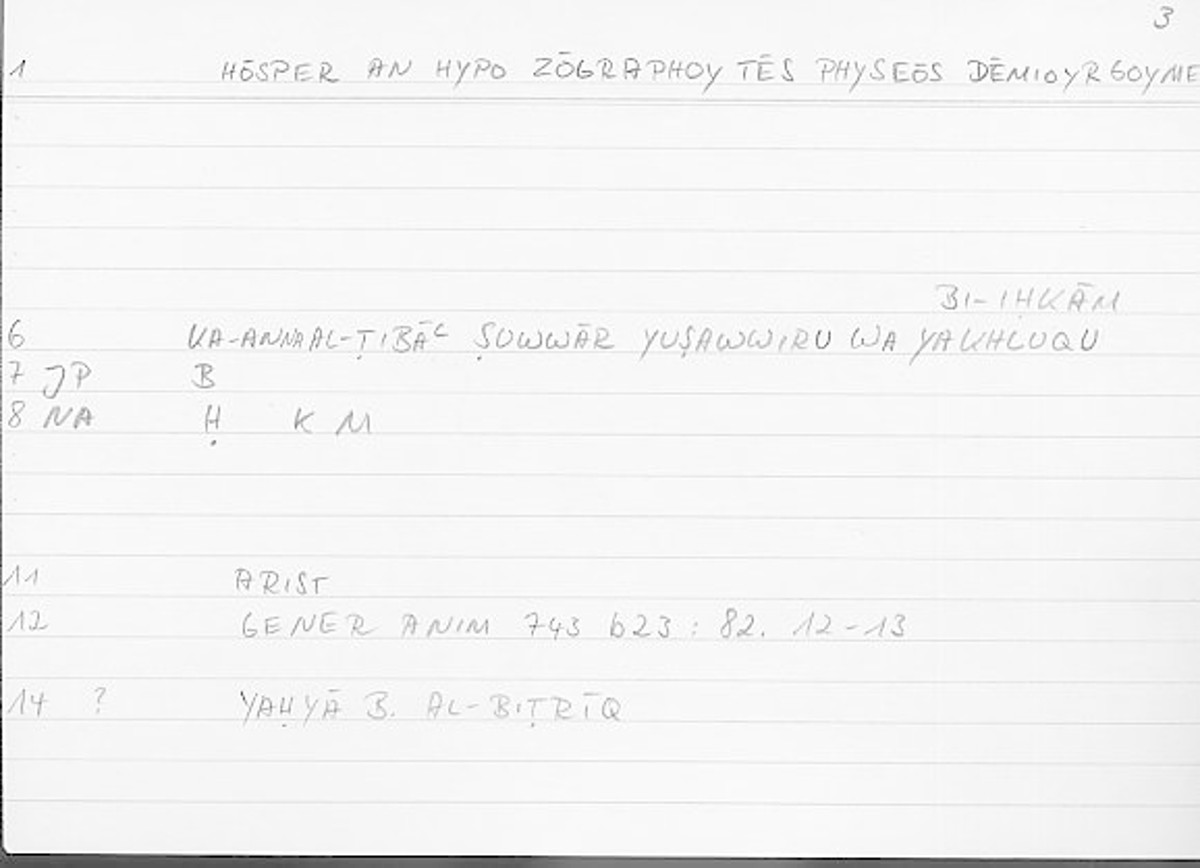 3
1 HŌSPER AN HYPO ZŌGRAPHOY TĒS PHYSEŌS DĒMIOYRGOYME
BI-IḤKĀM
6 KA-ANNA AL-ṬIBĀC ṢUWWĀR YUṢAWWIRU WA YAKHLUQU
7 JP B
8 NA Ḥ K M
11 ARIST
12 GENER ANIM 743 b23 : 82. 12-13
14 ? YAḤYĀ B. AL-BIṬRĪQ